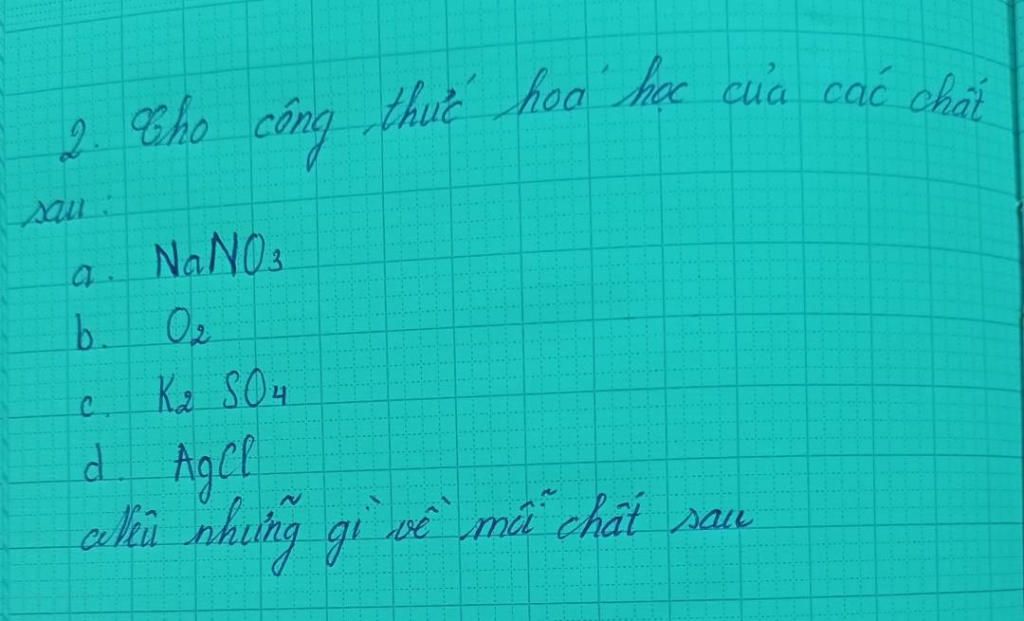 2. Cho công thức hoá học của các chất
sau:
a. NaNO₃
b. O₂
c. K₂ SO₄
d. AgCl
Nêu những gì về mỗi chất sau